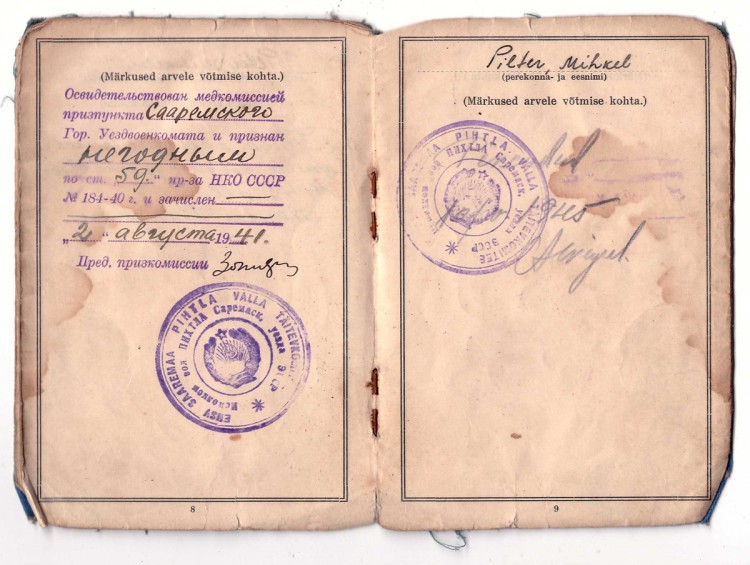 (Märkused arvele võtmise kohta.)
Освидетельствован медкомиссией
призпункта Сааремского
Гор. Уездвоенкомата и признан
негодным
по ст. 59 " пр-за НКО СССР
№ 184-40 г. и зачислен
"2" августа 1941.
Пред. призкомиссии
ENSV SAAREMAA PIHTLA VALLA TÄITEVKOMITEE
Исполком вол ПИХТЛА Саремаск. уезда ЭССР
8
Pilter, Mihkel
(perekonna- ja eesnimi)
(Märkused arvele võtmise kohta.)
SAAREMAA PIHTLA VALLA TÄITEVKOMITEE
Исполком вол ПИХТЛА Саремаск. уезда ЭССР
9